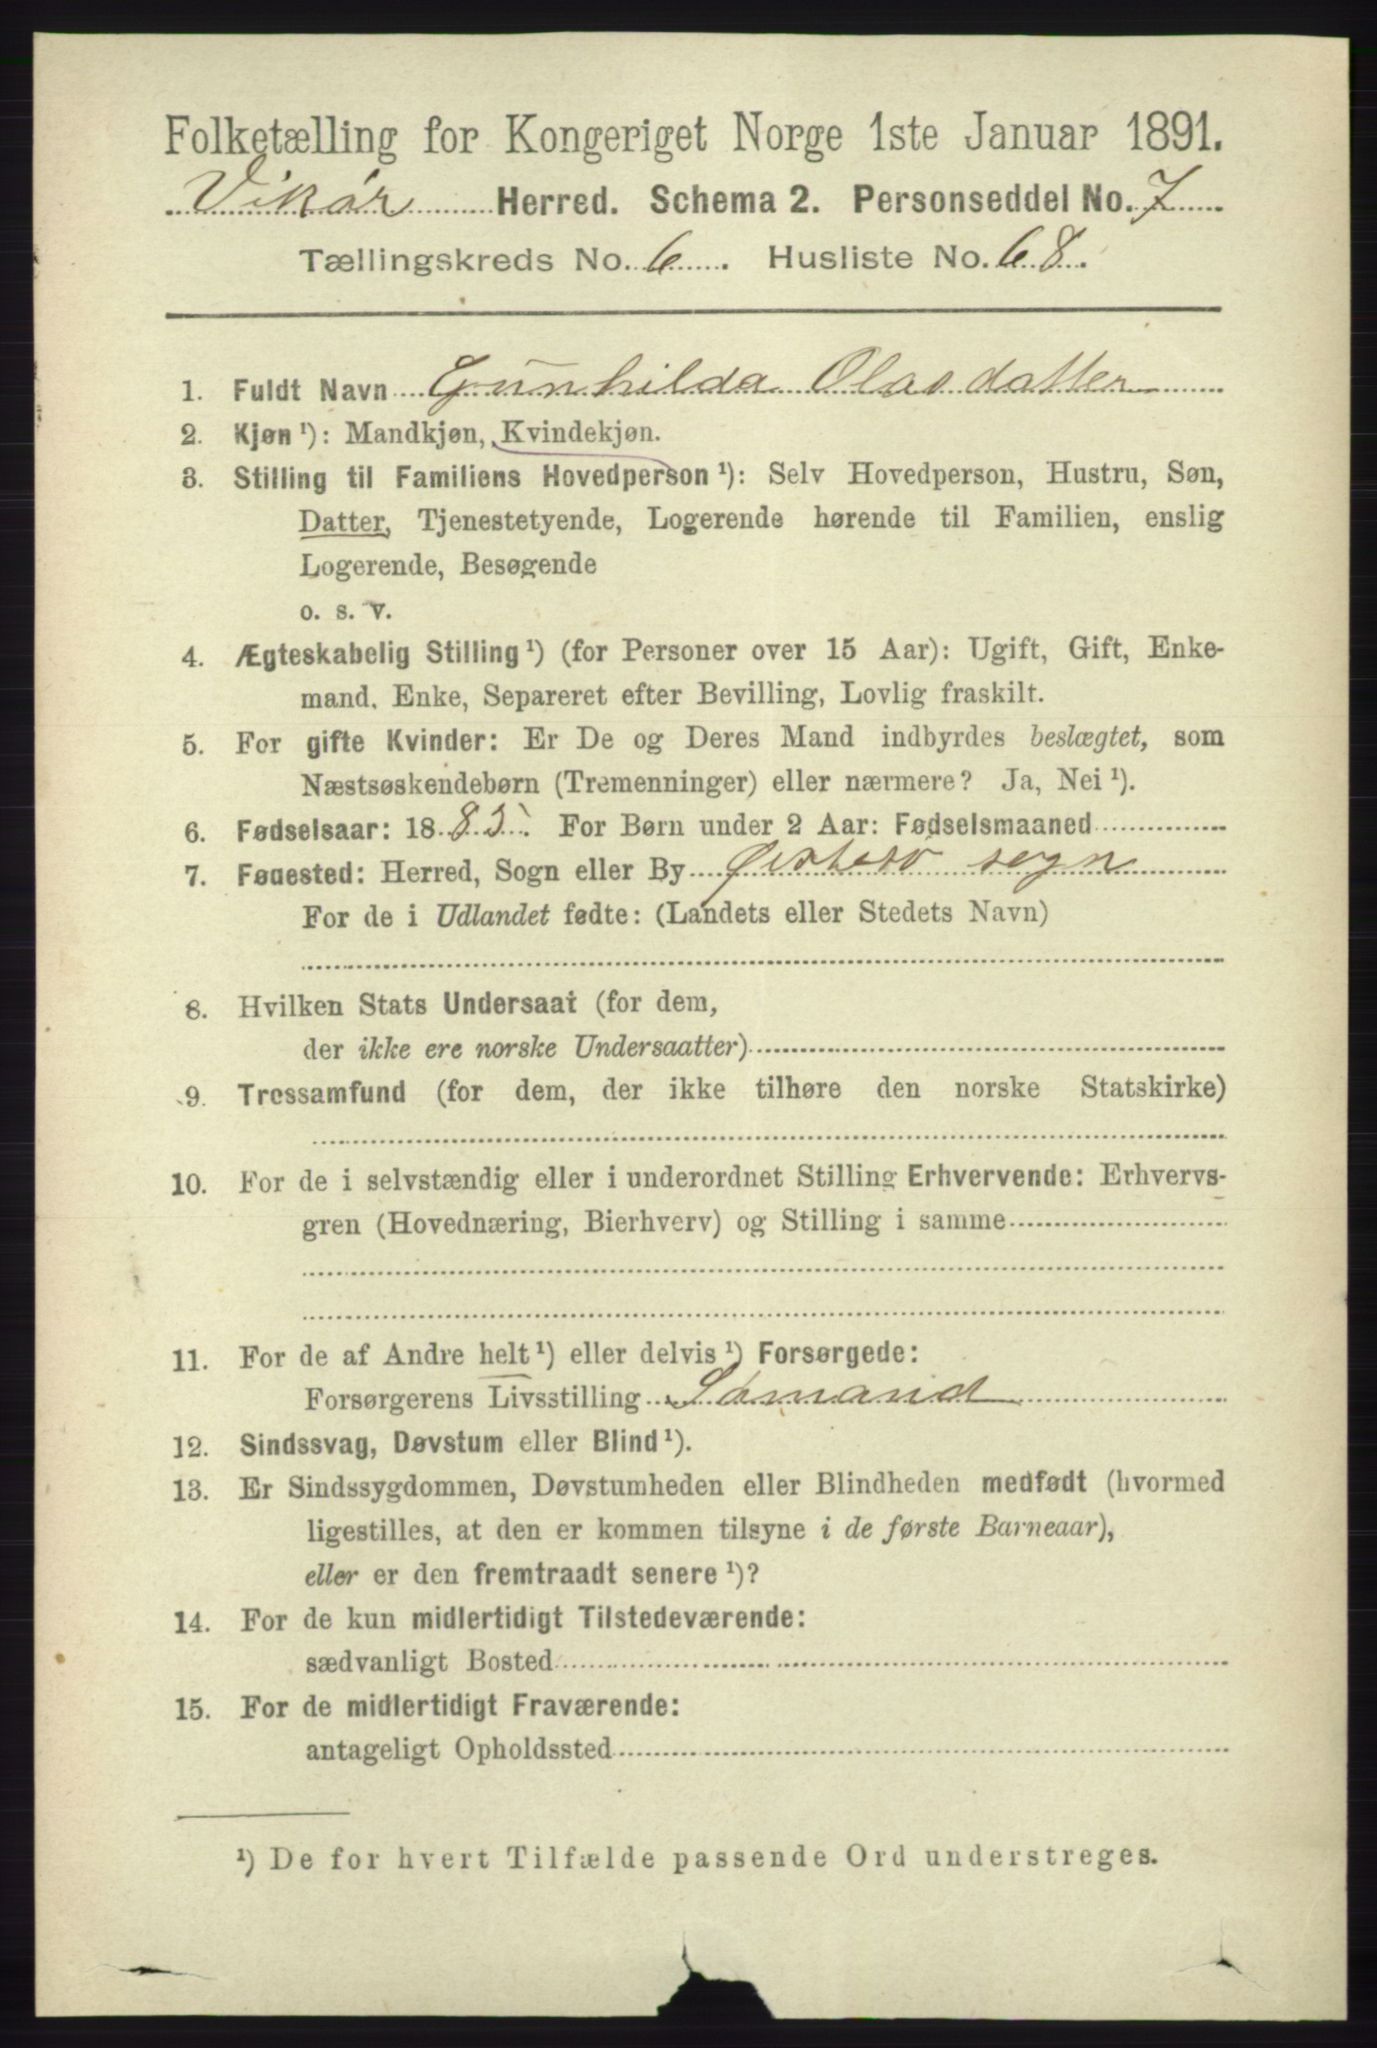 Folketælling for Kongeriget Norge 1ste Januar 1891.
Vikør Herred. Schema 2. Personseddel No. 7
Tællingskreds No. 6. Husliste No. 68.
1. Fuldt Navn Gunhilda Olasdatter
2. Kjøn ¹): Mandkjøn, Kvindekjøn.
3. Stilling til Familiens Hovedperson ¹): Selv Hovedperson, Hustru, Søn,
Datter, Tjenestetyende, Logerende hørende til Familien, enslig
Logerende, Besøgende
o. s. v.
4. Ægteskabelig Stilling ¹) (for Personer over 15 Aar): Ugift, Gift, Enke-
mand, Enke, Separeret efter Bevilling, Lovlig fraskilt.
5. For gifte Kvinder: Er De og Deres Mand indbyrdes beslægtet, som
Næstsøskendebørn (Tremenninger) eller nærmere? Ja, Nei ¹).
6. Fødselsaar: 1885. For Børn under 2 Aar: Fødselsmaaned
7. Fødested: Herred, Sogn eller By Østesø sogn
For de i Udlandet fødte: (Landets eller Stedets Navn)
8. Hvilken Stats Undersaat (for dem,
der ikke ere norske Undersaatter)
9. Trossamfund (for dem, der ikke tilhøre den norske Statskirke)
10. For de i selvstændig eller i underordnet Stilling Erhvervende: Erhvervs-
gren (Hovednæring, Bierhverv) og Stilling i samme
11. For de af Andre helt ¹) eller delvis ¹) Forsørgede:
Forsørgerens Livsstilling Sømand
12. Sindssvag, Døvstum eller Blind ¹).
13. Er Sindssygdommen, Døvstumheden eller Blindheden medfødt (hvormed
ligestilles, at den er kommen tilsyne i de første Barneaar),
eller er den fremtraadt senere ¹)?
14. For de kun midlertidigt Tilstedeværende:
sædvanligt Bosted
15. For de midlertidigt Fraværende:
antageligt Opholdssted
¹) De for hvert Tilfælde passende Ord understreges.